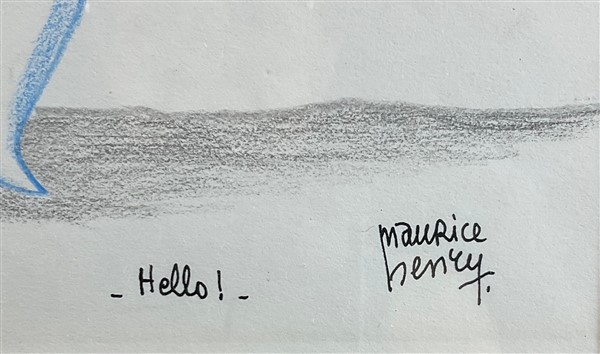 - Hello! -
maurice
henry.